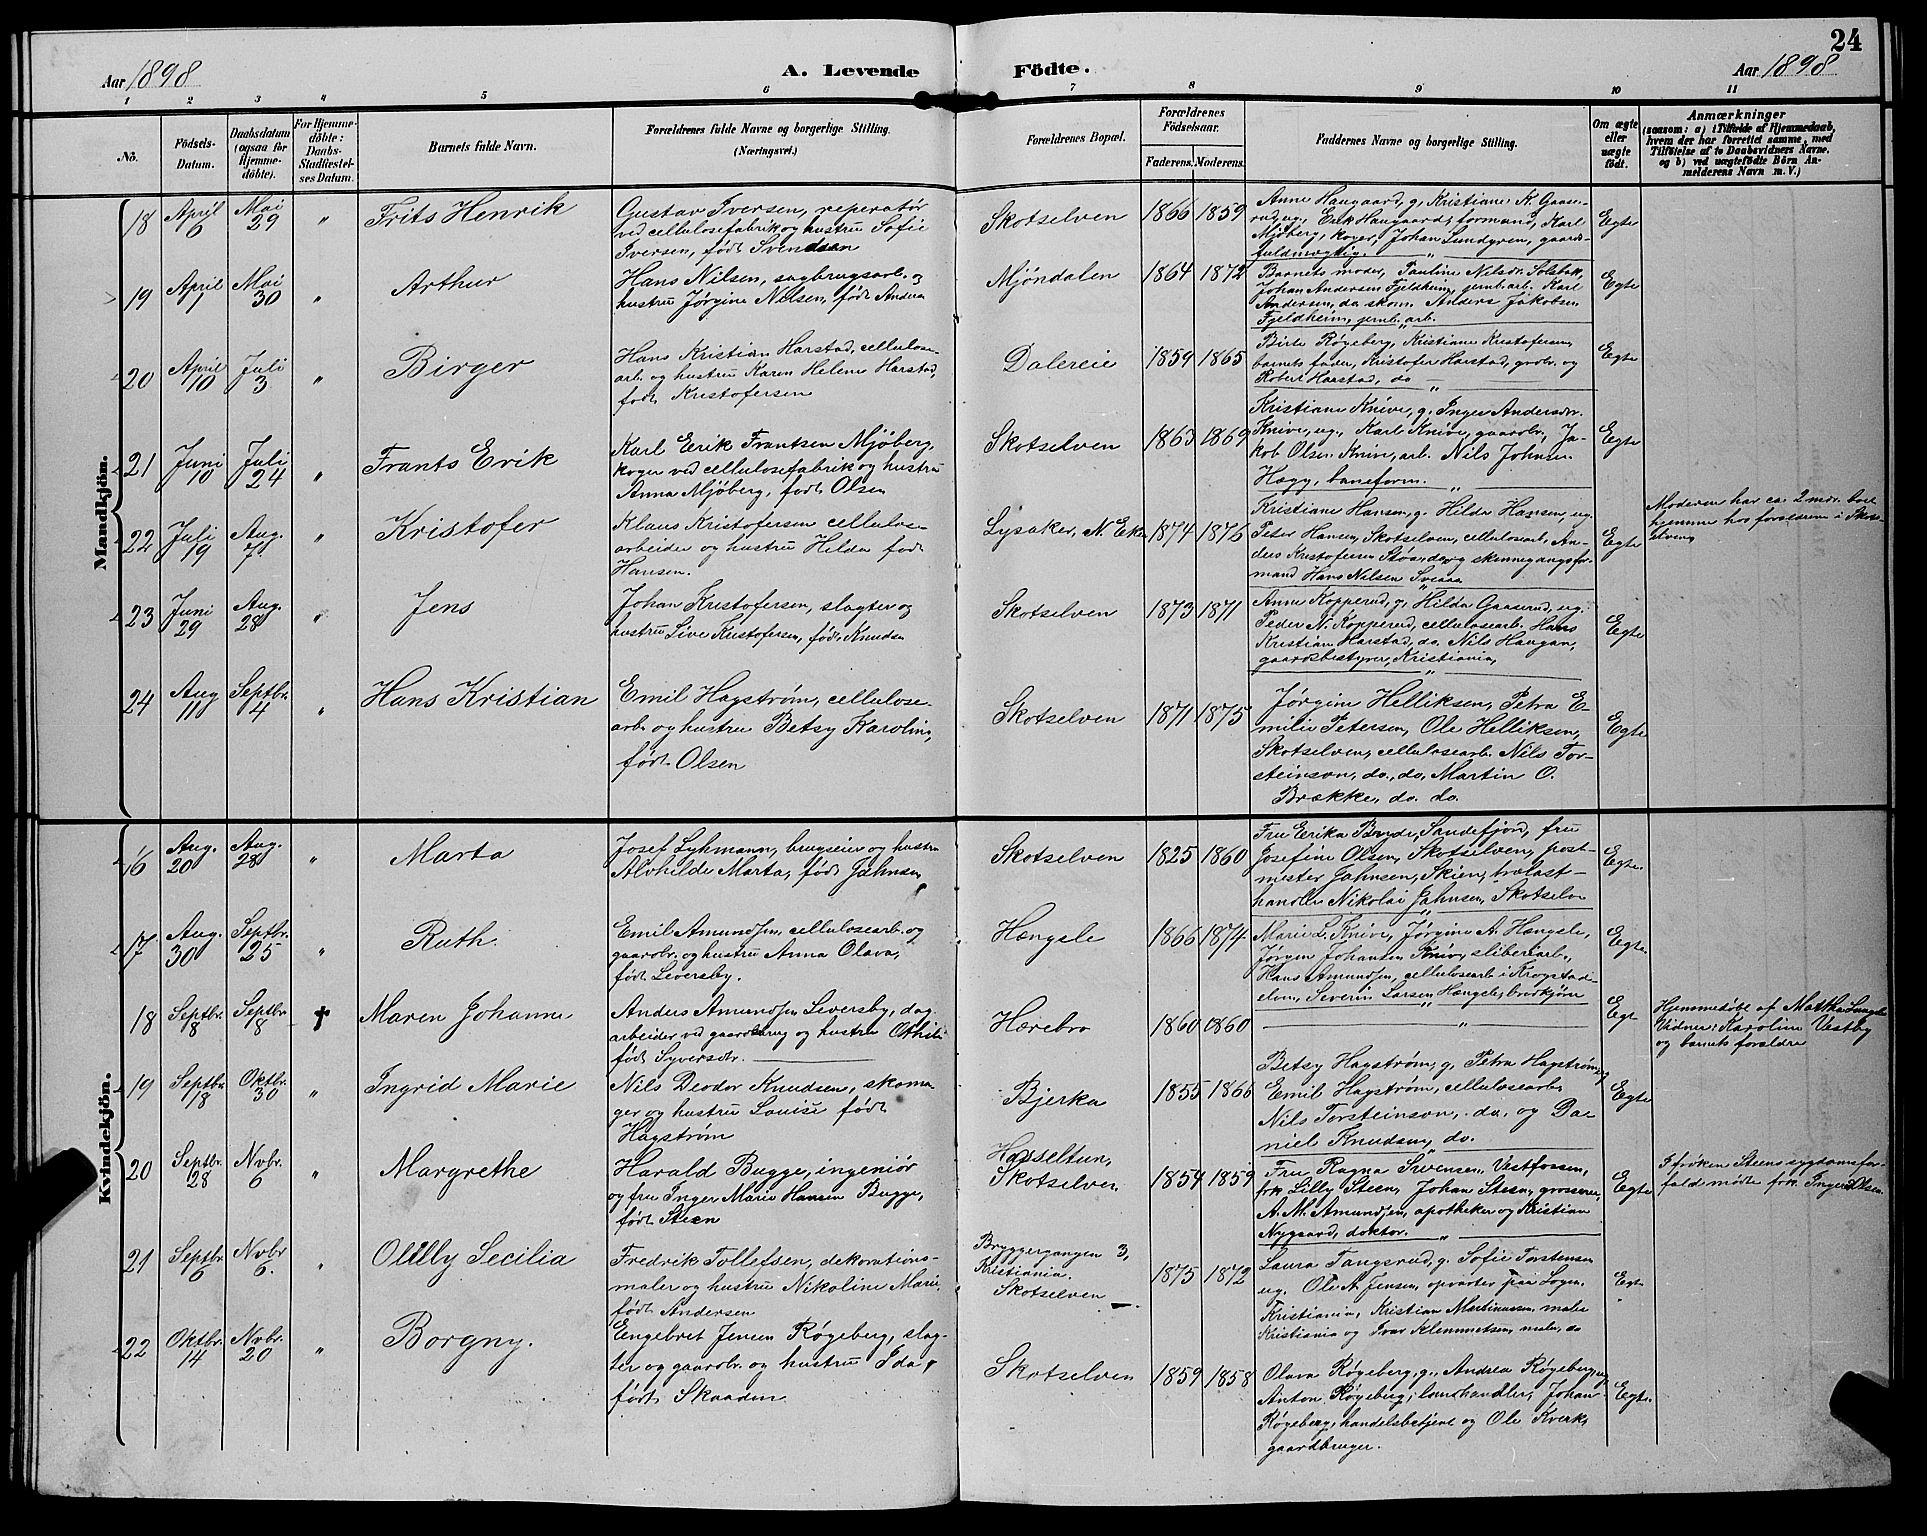 24
Aar 1898
A. Levende
Födte.
Aar 1898
1 2 3 4 5 6 7 8 9 10 11
No.
Födsels-
Datum.
Daabsdatum
(ogsaa for
Hjemme-
döbte).
For Hjemme-
döbte:
Daabs-
Stadfæstel-
ses Datum.
Barnets fulde Navn.
Forældrenes fulde Navne og borgerlige Stilling.
(Næringsvei.)
Forældrenes Bopæl.
Forældrenes
Födselsaar.
Faderens. Moderens.
Faddernes Navne og borgerlige Stilling.
Om ægte
eller
uægte
födt.
Anmærkninger
(saasom: a) i Tilfælde af Hjemmedaab,
hvem der har forrettet samme, med
Tilföielse af to Daabsvidners Navne,
og b) ved uægtefödte Börn An-
melderens Navn m. V.)
Mandkjön.
18
April
6
Mai
29
"
Frits Henrik
Gustav Iversen, reperatør
ved cellulosefabrik og hustru Sofie
Iversen, født Svendsen
Skotselven
1866 1859
Anne Haugaard, g, Kristiane K. Gaase-
rud, ug, Erik Haugaard, formand, Karl
Mjöberg, koger, Johan Lundgren, gaards-
fuldmægtig.
Egte
19
April
1
Mai
30
"
Arthur
Hans Nilsen, sagbrugsarb. og
hustru Jørgine Nilsen, født Anders
Mjøndalen
1864 1872
Barnets moder, Pauline Nilsdr. Solsbak,
Johan Andersen Fjeldheim, jernb.arb. Karl
Andersen, do skom. Anders Jakobsen
Fjeldheim, jernb. arb.
Egte
20
April
10
Juli
3
"
Birger
Hans Kristian Harstad, cellulose-
arb. og hustru Karen Helene Harstad,
født Kristofersen
Dalereie
1859 1865
Birte Røgeberg, Kristiane Kristofersen,
barnets fader, Kristofer Harstad, gaardbr. og
Robert Harstad, do
Egte
21
Juni
10
Juli
24
"
Frants Erik
Karl Erik Frantsen Mjöberg,
koger ved cellulosefabrik og hustru
Anna Mjöberg, født Olsen
Skotselven
1863 1869
Kristiane Knive, g. Inger Andersdr.
Knive, ug, Karl Knive, gaardbr, Ja-
kob Olsen Knive, arb. Nils Johnsen
Hagg, baneform.
Egte
22
Juli
19
Aug.
7
"
Kristofer
Klaus Kristofersen cellulose-
arbeider og hustru Hilda født
Hansen.
Lysaker, N. Eker
1874 1876
Kristiane Hansen, g. Hilda Hansen, ug.
Peter Hansen, Skotselven, cellulosearb, An-
ders Kristofersen Støa, do, og skinnegangsfor-
mand Hans Nilsen Sveaas
Egte
Moderen har ca. 2 mdr. bort
hjemme hos forældrene i Skots-
elven
23
Juni
29
Aug.
28
"
Jens
Johan Kristofersen, slagter og
hustru Live Kristofersen, født Knudsen
Skotselven
1873 1871
Anne Kopperud, g, Hilda Gaaserud, ug.
Peder N. Kopperud, cellulosearb. Hans
Kristian Harstad, do. Nils Haugan,
gaardsbestyrer, Kristiania,
Egte
24
Aug
11
Septbr.
4
"
Hans Kristian
Emil Hagstrøm, cellulose-
arb. og hustru Betsy Karoline,
født Olsen
Skotselven
1871 1875
Jørgine Helliksen, Petra E-
milie Petersen, Ole Helliksen,
Skotselven, cellulosearb. Nils Tor-
steinson, do, do, Martin O.
Brække, do. do.
Egte
Kvindekjön.
16
Aug.
20
Aug.
28
"
Marta
Josef Lyhmann, brugseier og hustru
Alvhilde Marta, født Jahnsen
Skotselven
1825 1860
Fru Erika Bryde, Sandefjord, fru
Josefine Olsen, Skotselven, post-
mester Jahnsen, Skien, trælast-
handler Nikolai Jahnsen, Skotselv
Egte.
17
Aug.
30
Septbr.
25
"
Ruth
Emil Amundsen, cellulosearb. og
gaardbr. og hustru Anna Olava,
født Leversby.
Hængsle
1866 1874
Marie L. Knive, Jørgine A. Hængsle,
Jørgen Johansen Knive, sliberiarb.,
Hans Amundsen, cellulosearb. i Krogstad-
elven, Severin Larsen Hængsle, brødkjører
Egte.
18
Septbr.
8
Septbr.
8
†
Maren Johanne
Anders Amundsen Leversby, dag
arbeider ved gaardsbrug og hustru Othilie
født Syversdr.
Hærebro
1860 1860
"
Egt
Hjemmedøbt af Mathea
Vidner: Karoline Vestby
og barnets forældre
19
Septbr
18
Oktbr.
30
"
Ingrid Marie
Nils Deodor Knudsen, skoma-
ger og hustru Louise født
Hagstrøm
Bjerka
1855 1866
Betsy Hagstrøm, g, Petra Hagstrøm, ug
Emil Hagstrøm, cellulosearb.
Nils Torsteinson, do, og Da-
niel Knudsen, do.
Egte
20
Septbr.
28
Nvbr.
6
"
Margrethe
Harald Bugge, ingeniør
og fru Inger Marie Hansen Bugge,
født Steen
Hasseltun,
Skotselven.
1854 1859
Fru Ragna Svensen, Vestfossen,
frk Lilly Steen, Johan Steen, grosserer,
A. M. Amundsen, apotheker og Kristian
Nygaard, doktor.
Egte
I frøken Steens sygdomsfor-
fald mødte frk. Inger Olsen.
21
Septbr
6
Nvbr
6.
"
Olilly Secilia
Fredrik Tollefsen, dekorations-
maler og hustru Nikoline Marie,
født Andersen
Bryggergangen 3,
Kristiania.
Skotselven
1875 1872
Laura Tangsrud, g. Sofie Torstensen
ug. Ole A. Jensen, opvarter paa Logen
Kristiania, Kristian Martinussen, maler
Kristiania og Ivar Klemmetsen, maler, do
Egte
22
Oktbr.
14
Nvbr.
20
"
Borgny.
Engebret Jensen Røgeberg, slag-
ter og gaardbr. og hustru Ida,
født Skaaden
Skotselven
1859 1858
Olava Røgeberg, g, Andrea Røgeberg, ug
Anton Røgeberg, landhandler, Johan
Røgeberg, handelsbetjent og Ole Kverk,
gaardbruger.
Egte.